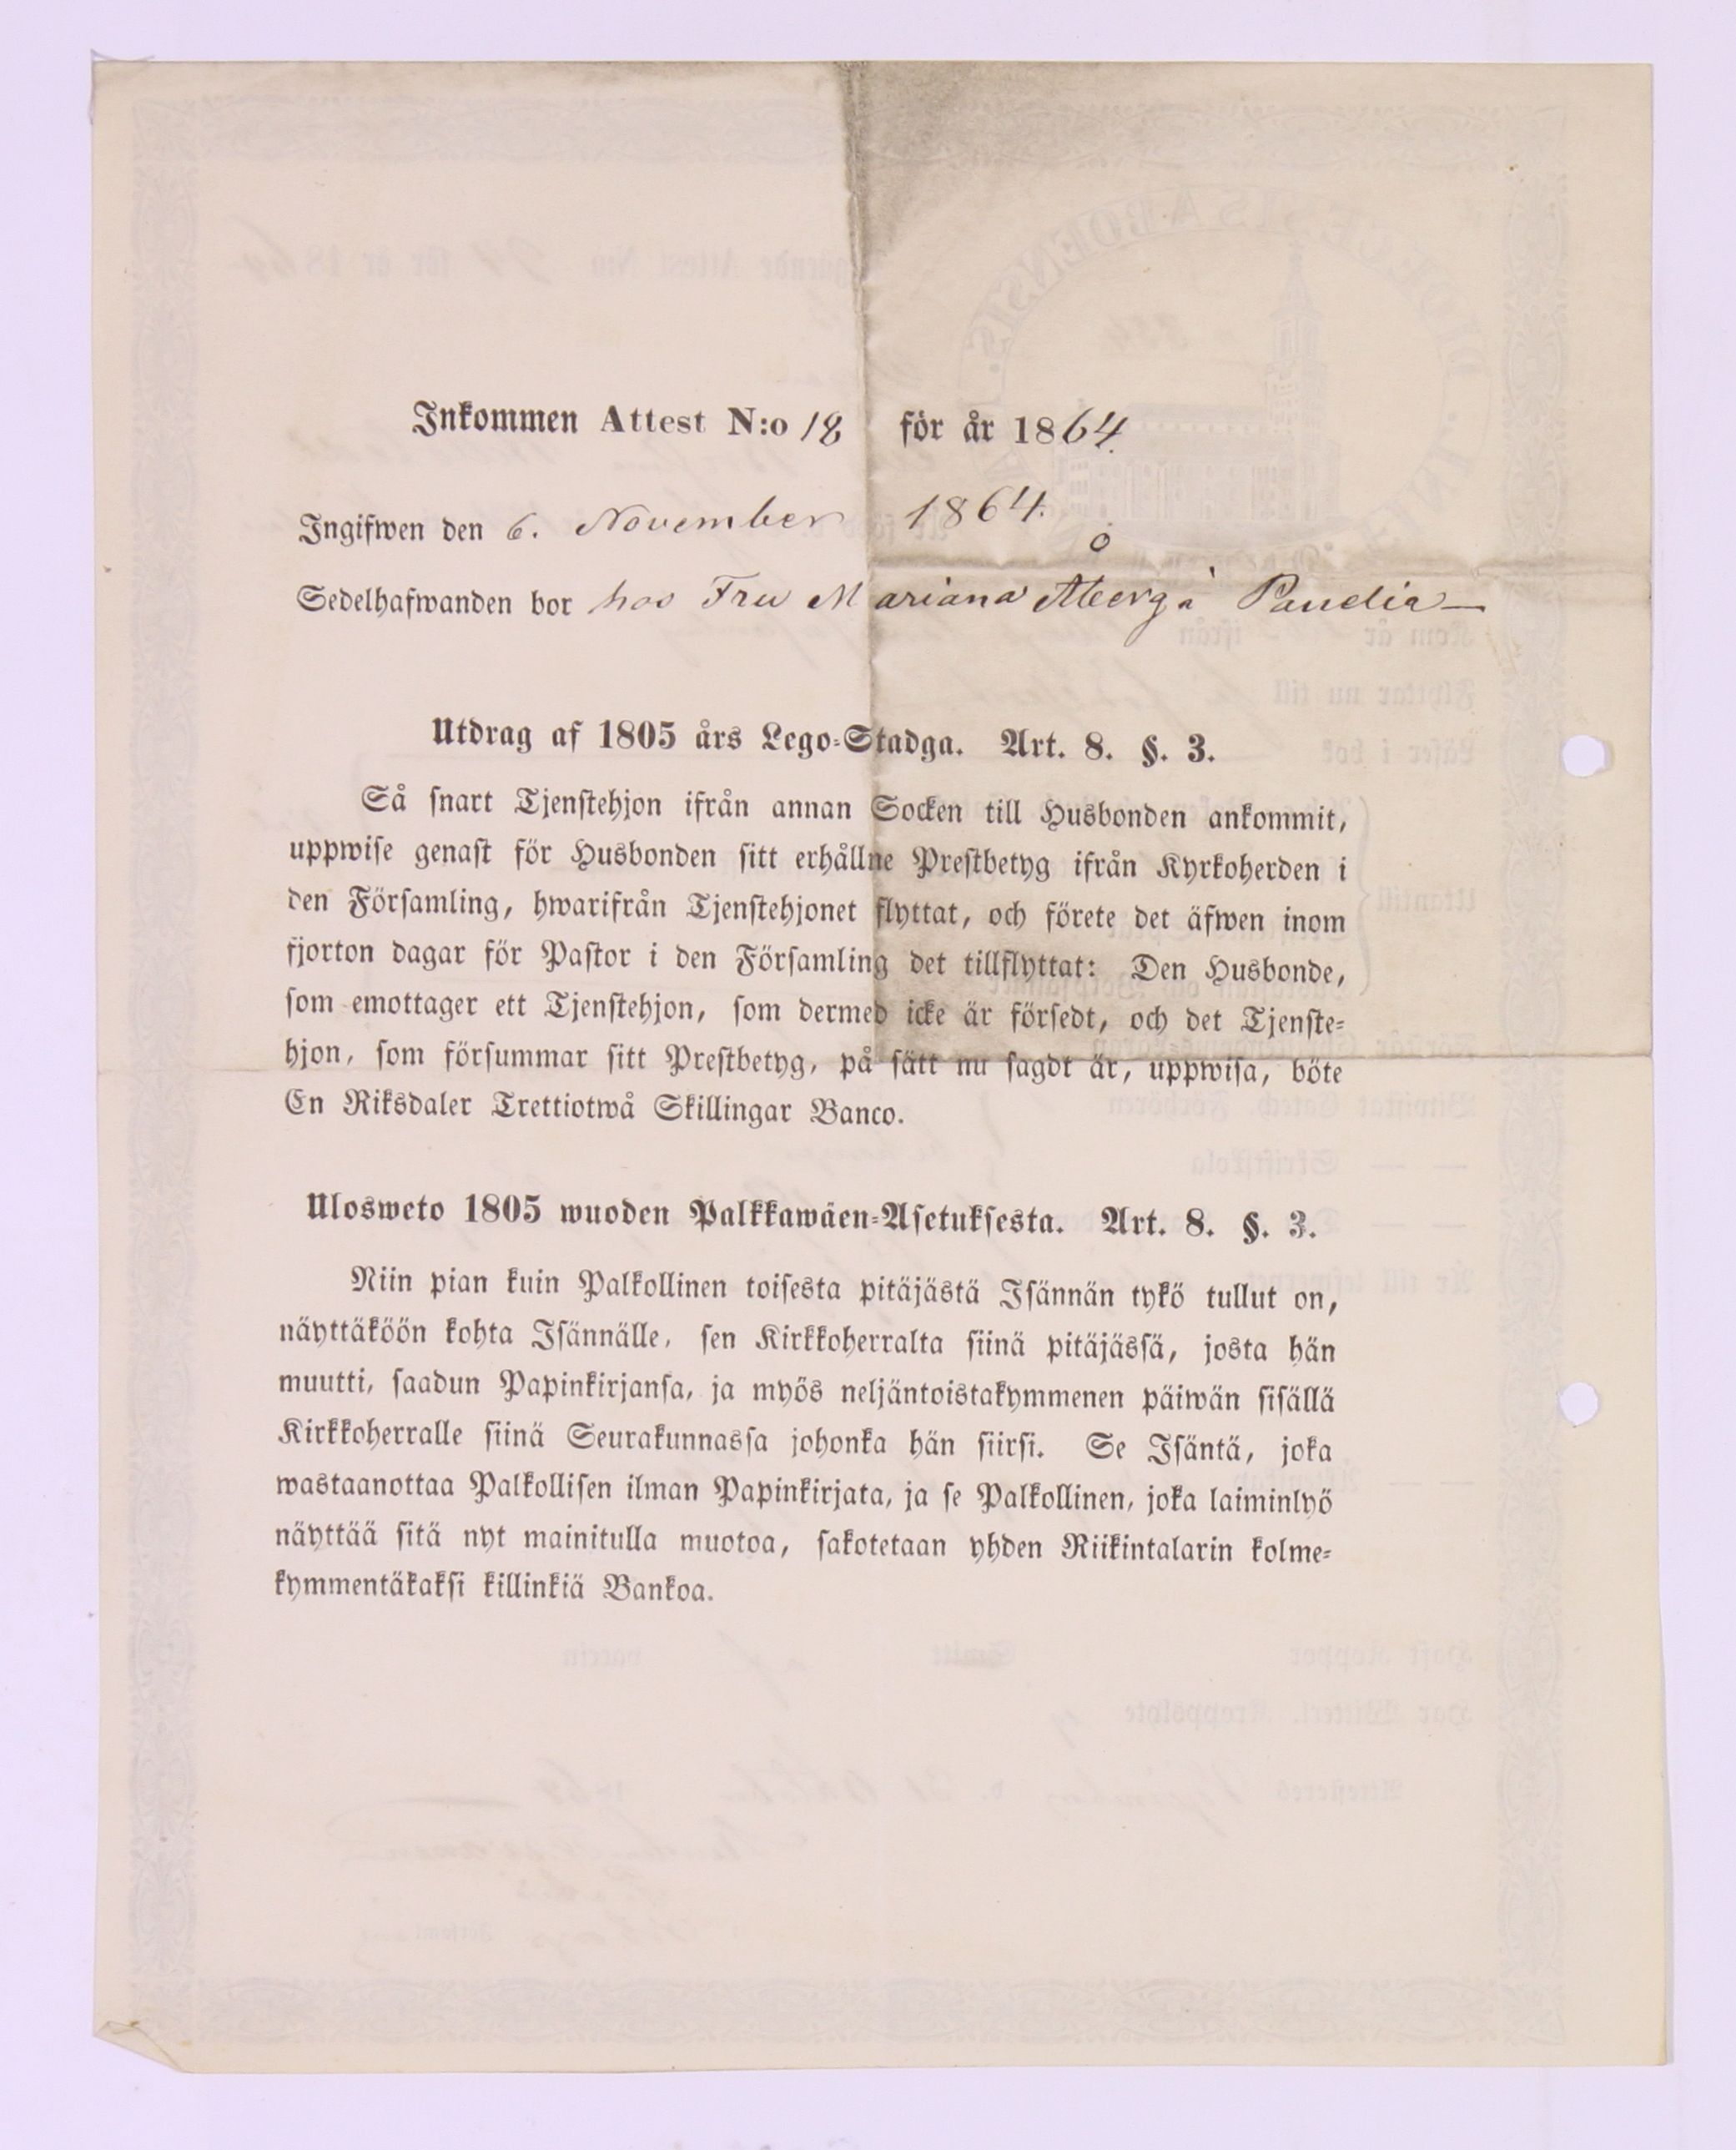 Inkommen Attest N:o 18 för år 1864.
Ingifwen den 6. November 1864.
Sedelhafwanden bor hos Fru Mariana Åberg à
Utdrag af 1805 års Lego-Stadga. Art. 8. §. 3.
Så snart Tjenstehjon ifrån annan Socken till Husbonden ankommit,
uppwise genast för Husbonden sitt erhållne Prestbetyg ifrån Kyrkoherden i
den Församling, hwarifrån Tjenstehjonet flyttat, och förete det äfwen inom
fjorton dagar för Pastor i den Församling det tillflyttat: Den Husbonde,
som emottager ett Tjenstehjon, som dermed icke är försedt, och det Tjenste-
hjon, som försummar sitt Prestbetyg, på sätt nu sagdt är, uppwisa, böte
En Riksdaler Trettiotwå Skillingar Banco.
Ulosweto 1805 wuoden Palkkawäen-Asetuksesta. Art. 8. §. 3.
Niin pian kuin Palkollinen toisesta pitäjästä Isännän tykö tullut on,
näyttäköön kohta Isännälle, sen Kirkkoherralta siinä pitäjässä, josta hän
muutti, saadun Papinkirjansa, ja myös neljäntoistakymmenen päiwän sisällä
Kirkkoherralle siinä Seurakunnassa johonka hän siirsi. Se Isäntä, joka
wastaanottaa Palkollisen ilman Papinkirjata, ja se Palkollinen, joka laiminlyö
näyttää sitä nyt mainitulla muotoa, sakotetaan yhden Riikintalarin kolme-
kymmentäkaksi killinkiä Bankoa.